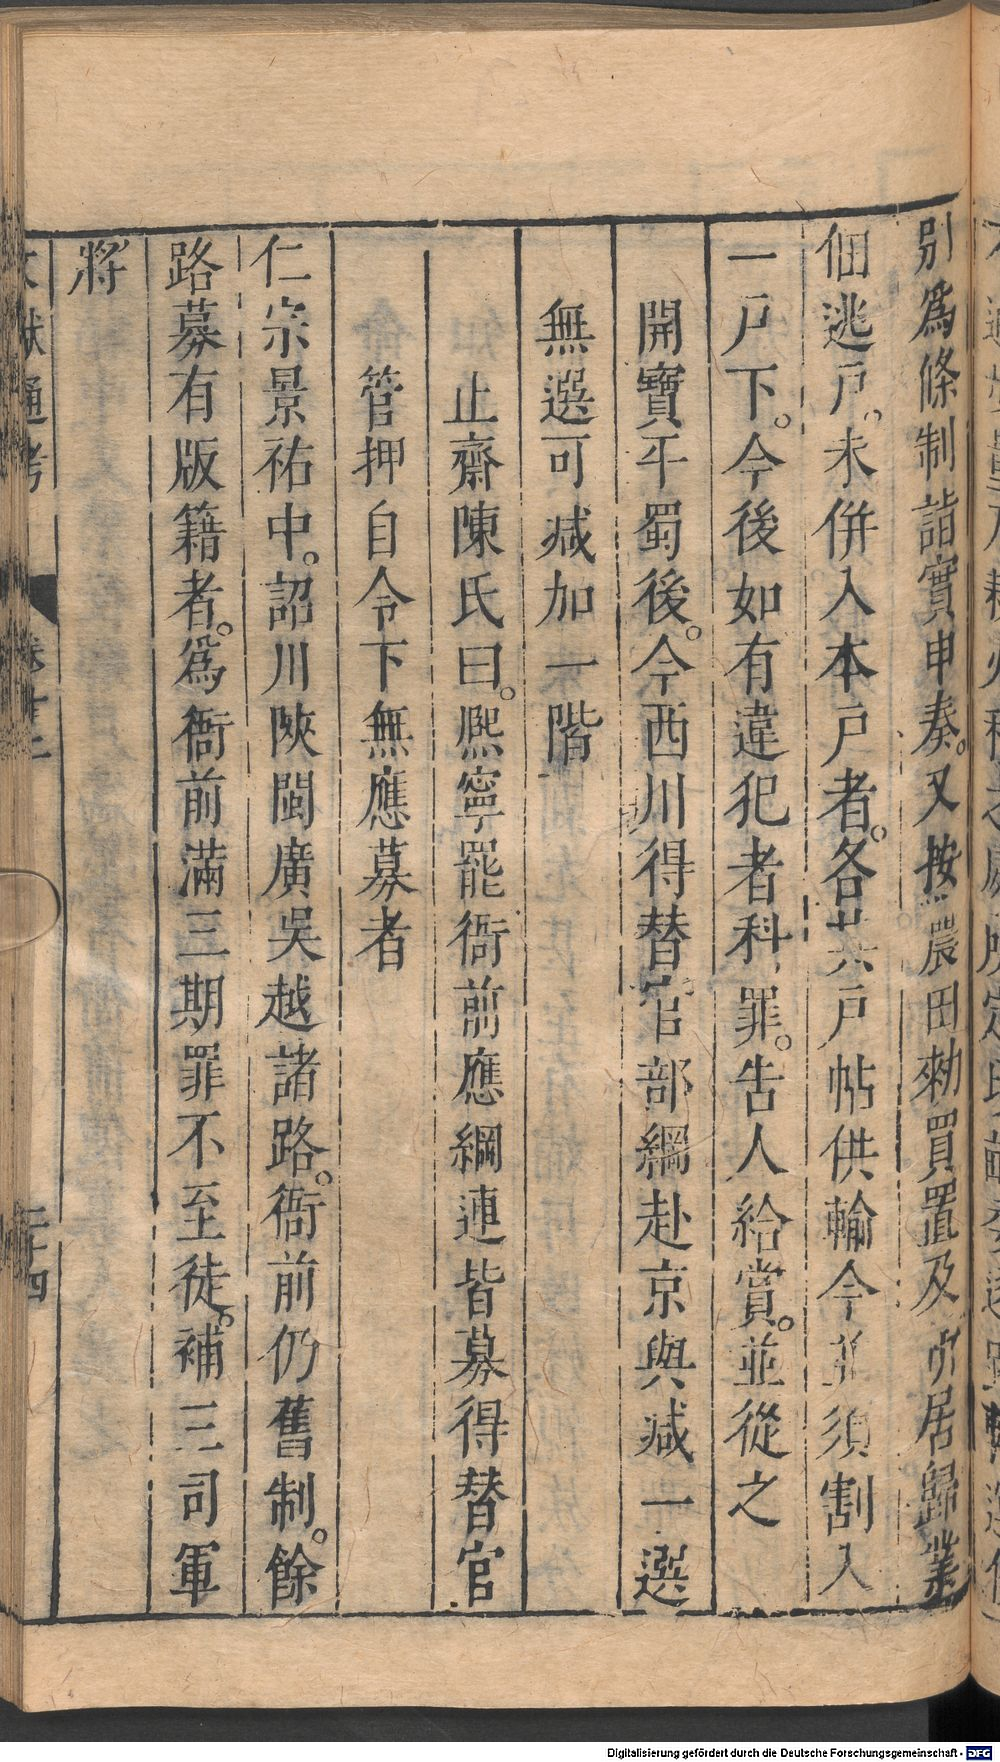 別爲條制詣實申奏。又按農田勑買置及歸業
佃逃戸。未併入本戸者。各共戸帖供輸今並須割入
一戸下。今後如有違犯者科罪。告人給賞。並從之
開寶平蜀後。令西川得替官部綱赴京與减一選
無選可减加一階
止齋陳氏曰。熈寧罷衙前應綱運皆募得替官
管押自令下無應募者
仁宗景祐中。詔川陝閩廣吳越諸路。衙前仍舊制。餘
路募有版籍者。爲衙前滿三期罪不至徒。補三司軍
將
文獻通考
二十四
Digitalisierung gefördert durch die Deutsche Forschungsgemeinschaft - DFG